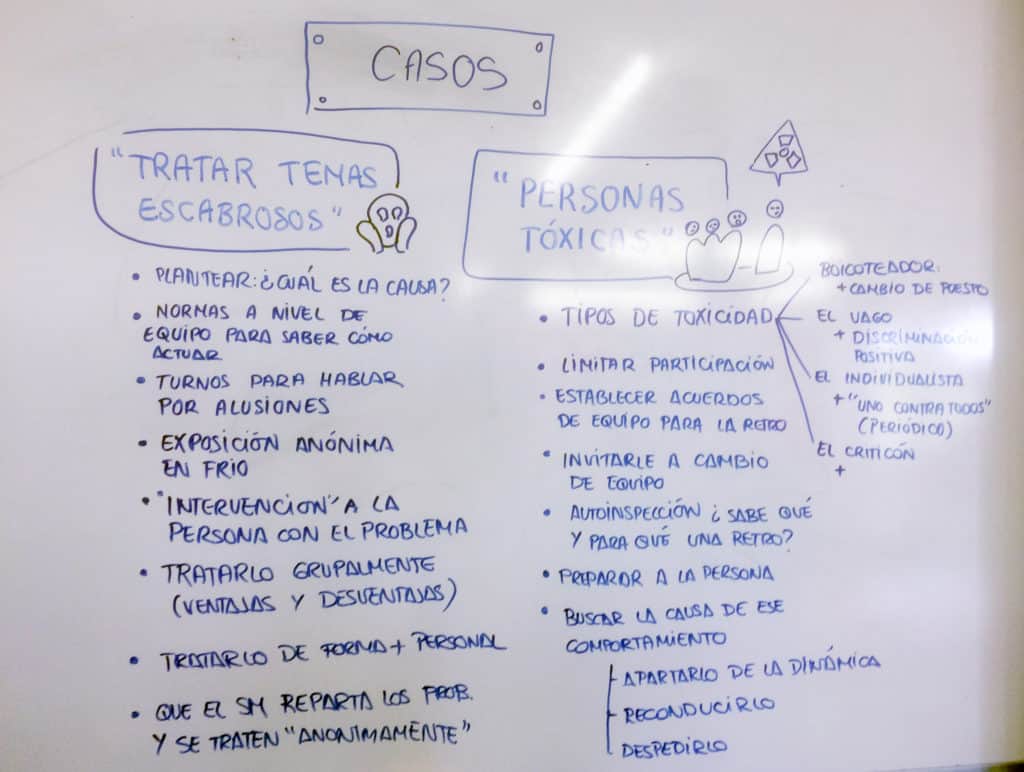 CASOS
"TRATAR TEMAS
ESCABROSOS"
• PLANTEAR: ¿CUÁL ES LA CAUSA?
• NORMAS A NIVEL DE
EQUIPO PARA SABER CÓMO
ACTUAR
• TURNOS PARA HABLAR
POR ALUSIONES
• EXPOSICIÓN ANÓNIMA
EN FRIO
• "INTERVENCION" A LA
PERSONA CON EL PROBLEMA
• TRATARLO GRUPALMENTE
(VENTAJAS Y DESVENTAJAS)
• TRATARLO DE FORMA + PERSONAL
• QUE EL SM REPARTA LOS PROB.
Y SE TRATEN "ANONIMAMENTE"
"PERSONAS
TÓXICAS"
• TIPOS DE TOXICIDAD
BOICOTEADOR:
+ CAMBIO DE PUESTO
EL VAGO
+ DISCRIMINACIÓN
POSITIVA
EL INDIVIDUALISTA
+ "UNO CONTRA TODOS"
(PERIÓDICO)
EL CRITICÓN
+
• LIMITAR PARTICIPACIÓN
• ESTABLECER ACUERDOS
DE EQUIPO PARA LA RETRO
• INVITARLE A CAMBIO
DE EQUIPO
• AUTOINSPECCIÓN ¿SABE QUÉ
Y PARA QUÉ UNA RETRO?
• PREPARAR A LA PERSONA
• BUSCAR LA CAUSA DE ESE
COMPORTAMIENTO
- APARTARLO DE LA DINÁMICA
- RECONDUCIRLO
- DESPEDIRLO